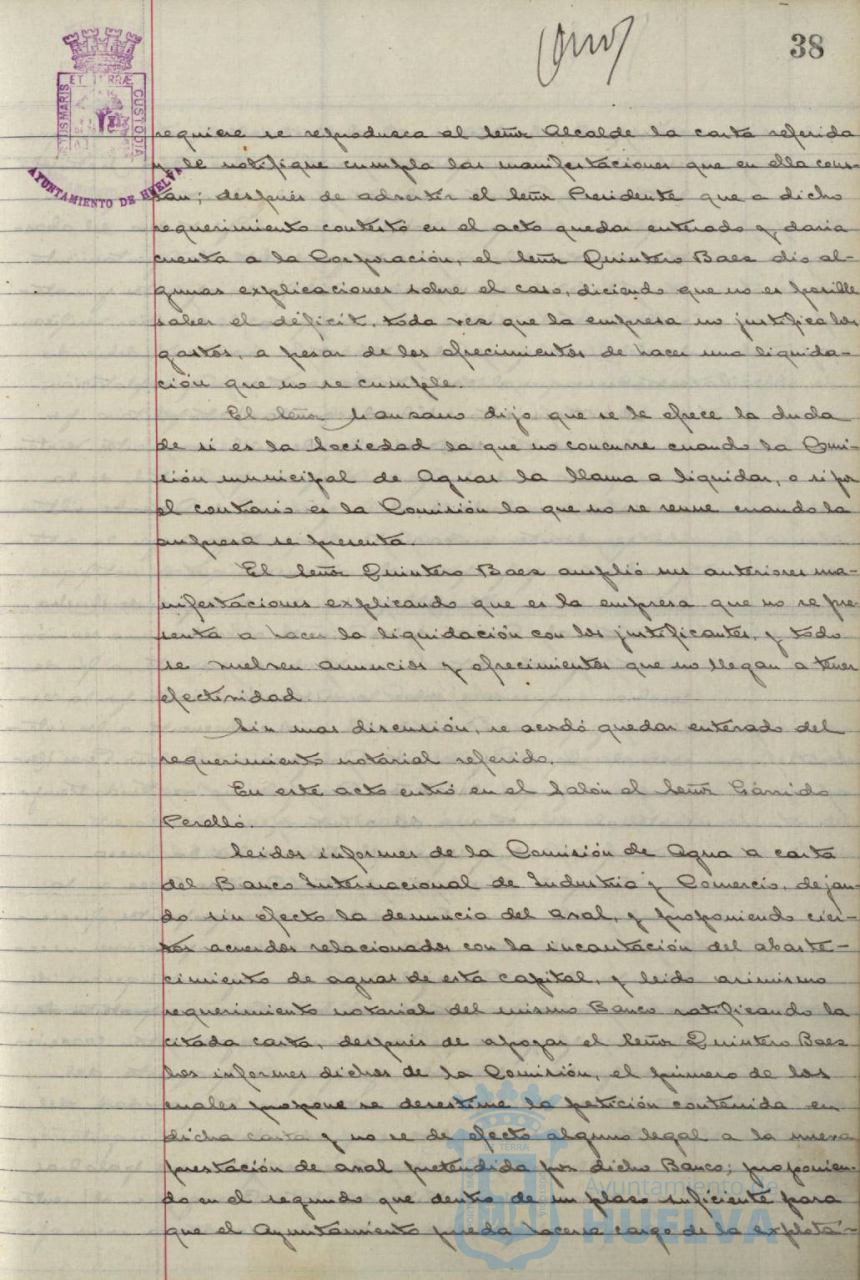 38
ET TERRÆ
CUSTODIA
AYUNTAMIENTO DE HUELVA
requiere se reprodusca al Señor Alcalde la carta referida
y le notifique cumpla las manifestaciones que en ella cons-
tan; después de advertir el Señor Presidente que a dicho
requerimiento contestó en el acto quedar enterado y daría
cuenta a la Corporación, el Señor Quintero Baez dio al-
gunas explicaciones sobre el caso, diciendo que no es posible
saber el déficit, toda vez que la empresa no justifica los
gastos, a pesar de los ofrecimientos de hacer una liquida-
ción que no se cumple.
El Señor Manzano dijo que se le ofrece la duda
de si es la Sociedad la que no concurre cuando la Comi-
sión municipal de Aguas la llama a liquidar, o si por
el contrario es la Comisión la que no se reune cuando la
empresa se presenta.
El Señor Quintero Baez amplió sus anteriores ma-
nifestaciones explicando que es la empresa que no se pre-
senta a hacer la liquidación con los justificantes, y todo
se vuelven anuncios y ofrecimientos que no llegan a tener
efectividad
Sin mas discusión, se acordó quedar enterado del
requerimiento notarial referido.
En este acto entró en el Salón el Señor Gárrido
Perelló.
Leidos informes de la Comisión de Agua a carta
del Banco Internacional de Industria y Comercio, dejan-
do sin efecto la denuncia del aval, y proponiendo cier-
tos acuerdos relacionados con la incautación del abaste-
cimiento de aguas de esta capital, y leido asimismo
requerimiento notarial del mismo Banco ratificando la
citada carta, después de apoyar el Señor Quintero Baez
los informes dichos de la Comisión, el primero de los
cuales propone se desestime la petición contenida en
dicha carta y no se de efecto alguno legal a la nueva
prestación de aval pretendida por dicho Banco; proponien-
do en el segundo que dentro de un plazo suficiente para
que el Ayuntamiento pueda hacerse cargo de la explota-
Ayuntamiento de
HUELVA